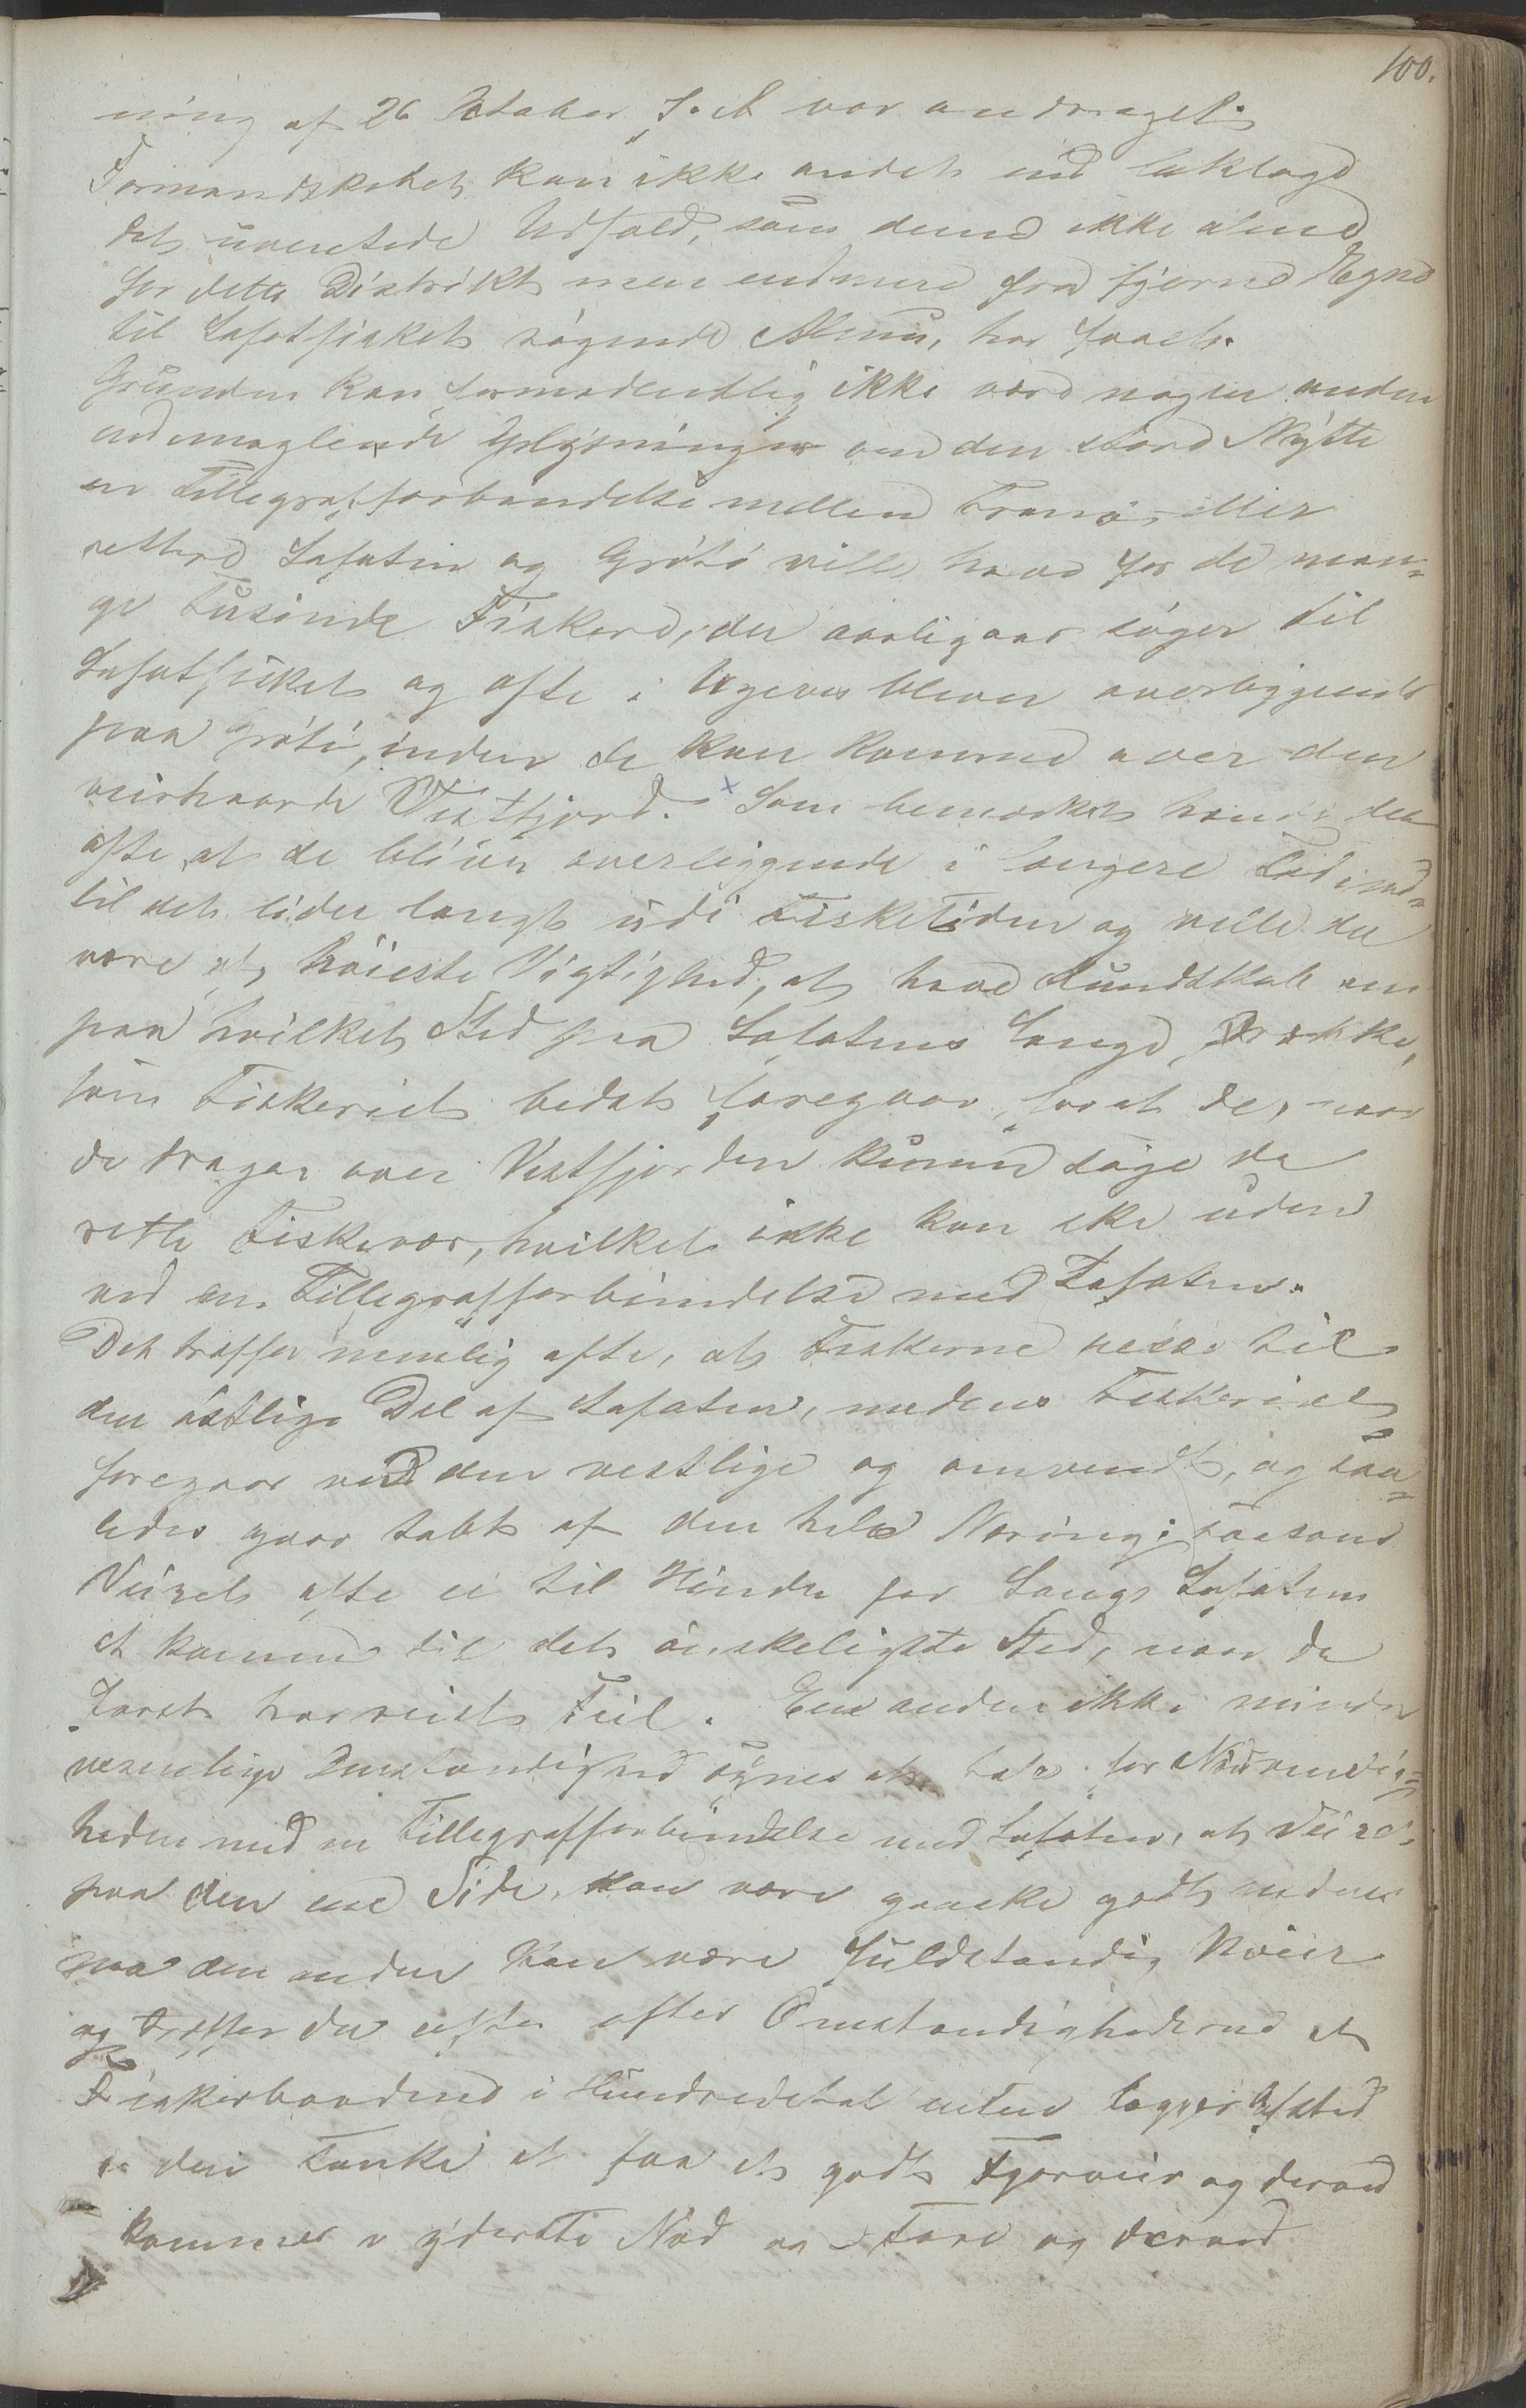 100.
ning af 26 Oktober f. A var andraget.
Formandskabet kan ikke andet end beklage
det uventede Udfald, som denne ikke alene
for dette Distrikt men endmere fra fjerne Egne
til Lofotfisket søgende Almue, har faaet.
Grunden kan formodentlig ikke være nogen anden
end manglende Oplysninger om den store Nytte
en Tillegrafforbindelse mellem Tranø, eller
rettere Lofoten og Grøtø ville have for de man=
ge Tusinde Fiskere, der aarligaar søger til
Lofotfisket og ofte i Ugevis bliver overliggende
paa Grøtø, inden de kan komme over den
veirhaarde Vestfjord. x Som bemærket hænder det
ofte at de bliver overliggende i længere Tid ind=
til det lider langt udi Fisketiden og ville det
være af høieste Vigtighed, at have Kundskab om
paa hvilket Sted paa Lofotens Længde,
som Fiskeriet bedst foregaar, for at de, naar
de drager over Vestfjorden kunne søge de
rette Fiskevær, hvilket ikke kan ske uden
ved en Tillegrafforbindelse med Lofoten.
Det træffer nemlig ofte, at Fiskerne reise til
den østlige Del af Lofoten, medens Fiskeriet
foregaar ved den vestlige og omvendt, og saa=
ledes gaar tabt af den hele Næring; saasom
Veiret ofte er til Hinder for Langs Lofoten
at komme til det ønskeligste Sted, naar de
først har reist Feil. En anden ikke mindre
væsentlige Omstændighed synes at tale for Nødvendig=
heden med en Tillegrafforbindelse med Lofoten, at Veiret
paa den ene Side, kan være ganske godt medens
paa den anden kan være fuldstændig Uveir
og træffer det ofte efter Omstændighederne at
Fiskerbaadene i Hundredetal lægger Afsted
i den Tanke at faa et godt Fjorveir og derved
kommer i yderste Nød og Fare og derved